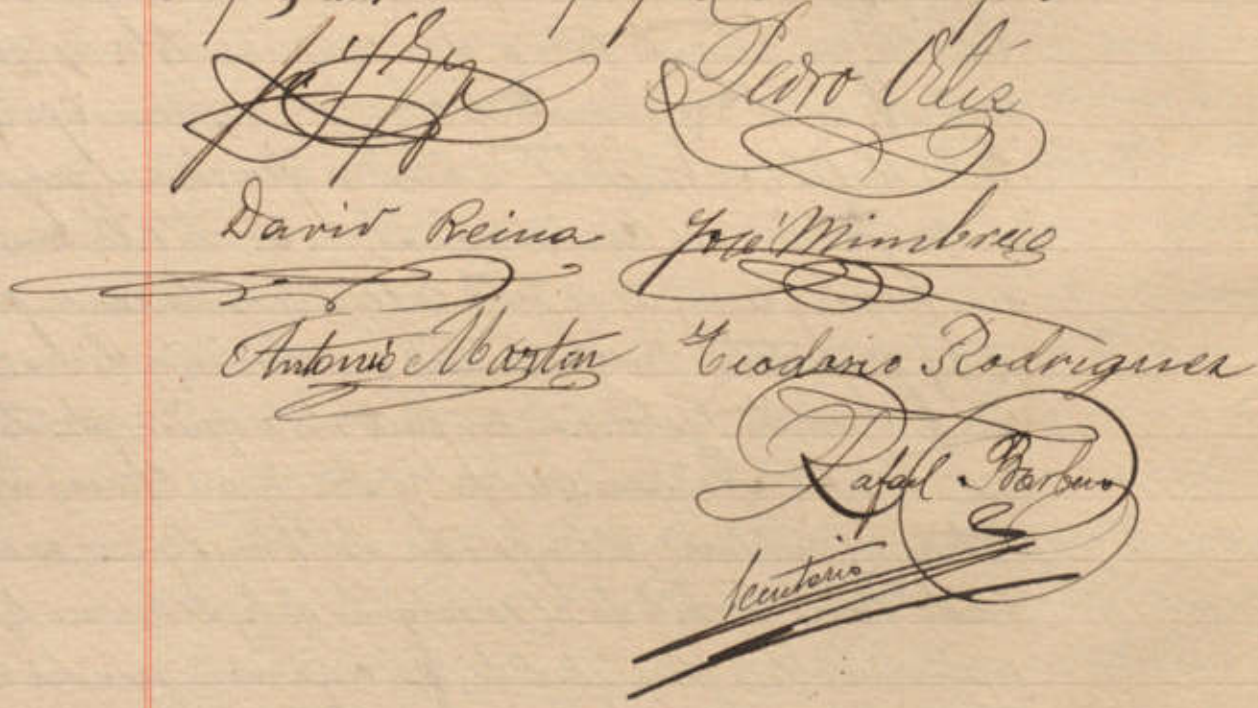 Pedro Ortiz
David Reina José Mimbrero
Antonio Martin Teodosio Rodriguez
Rafael Barbero
Secretario